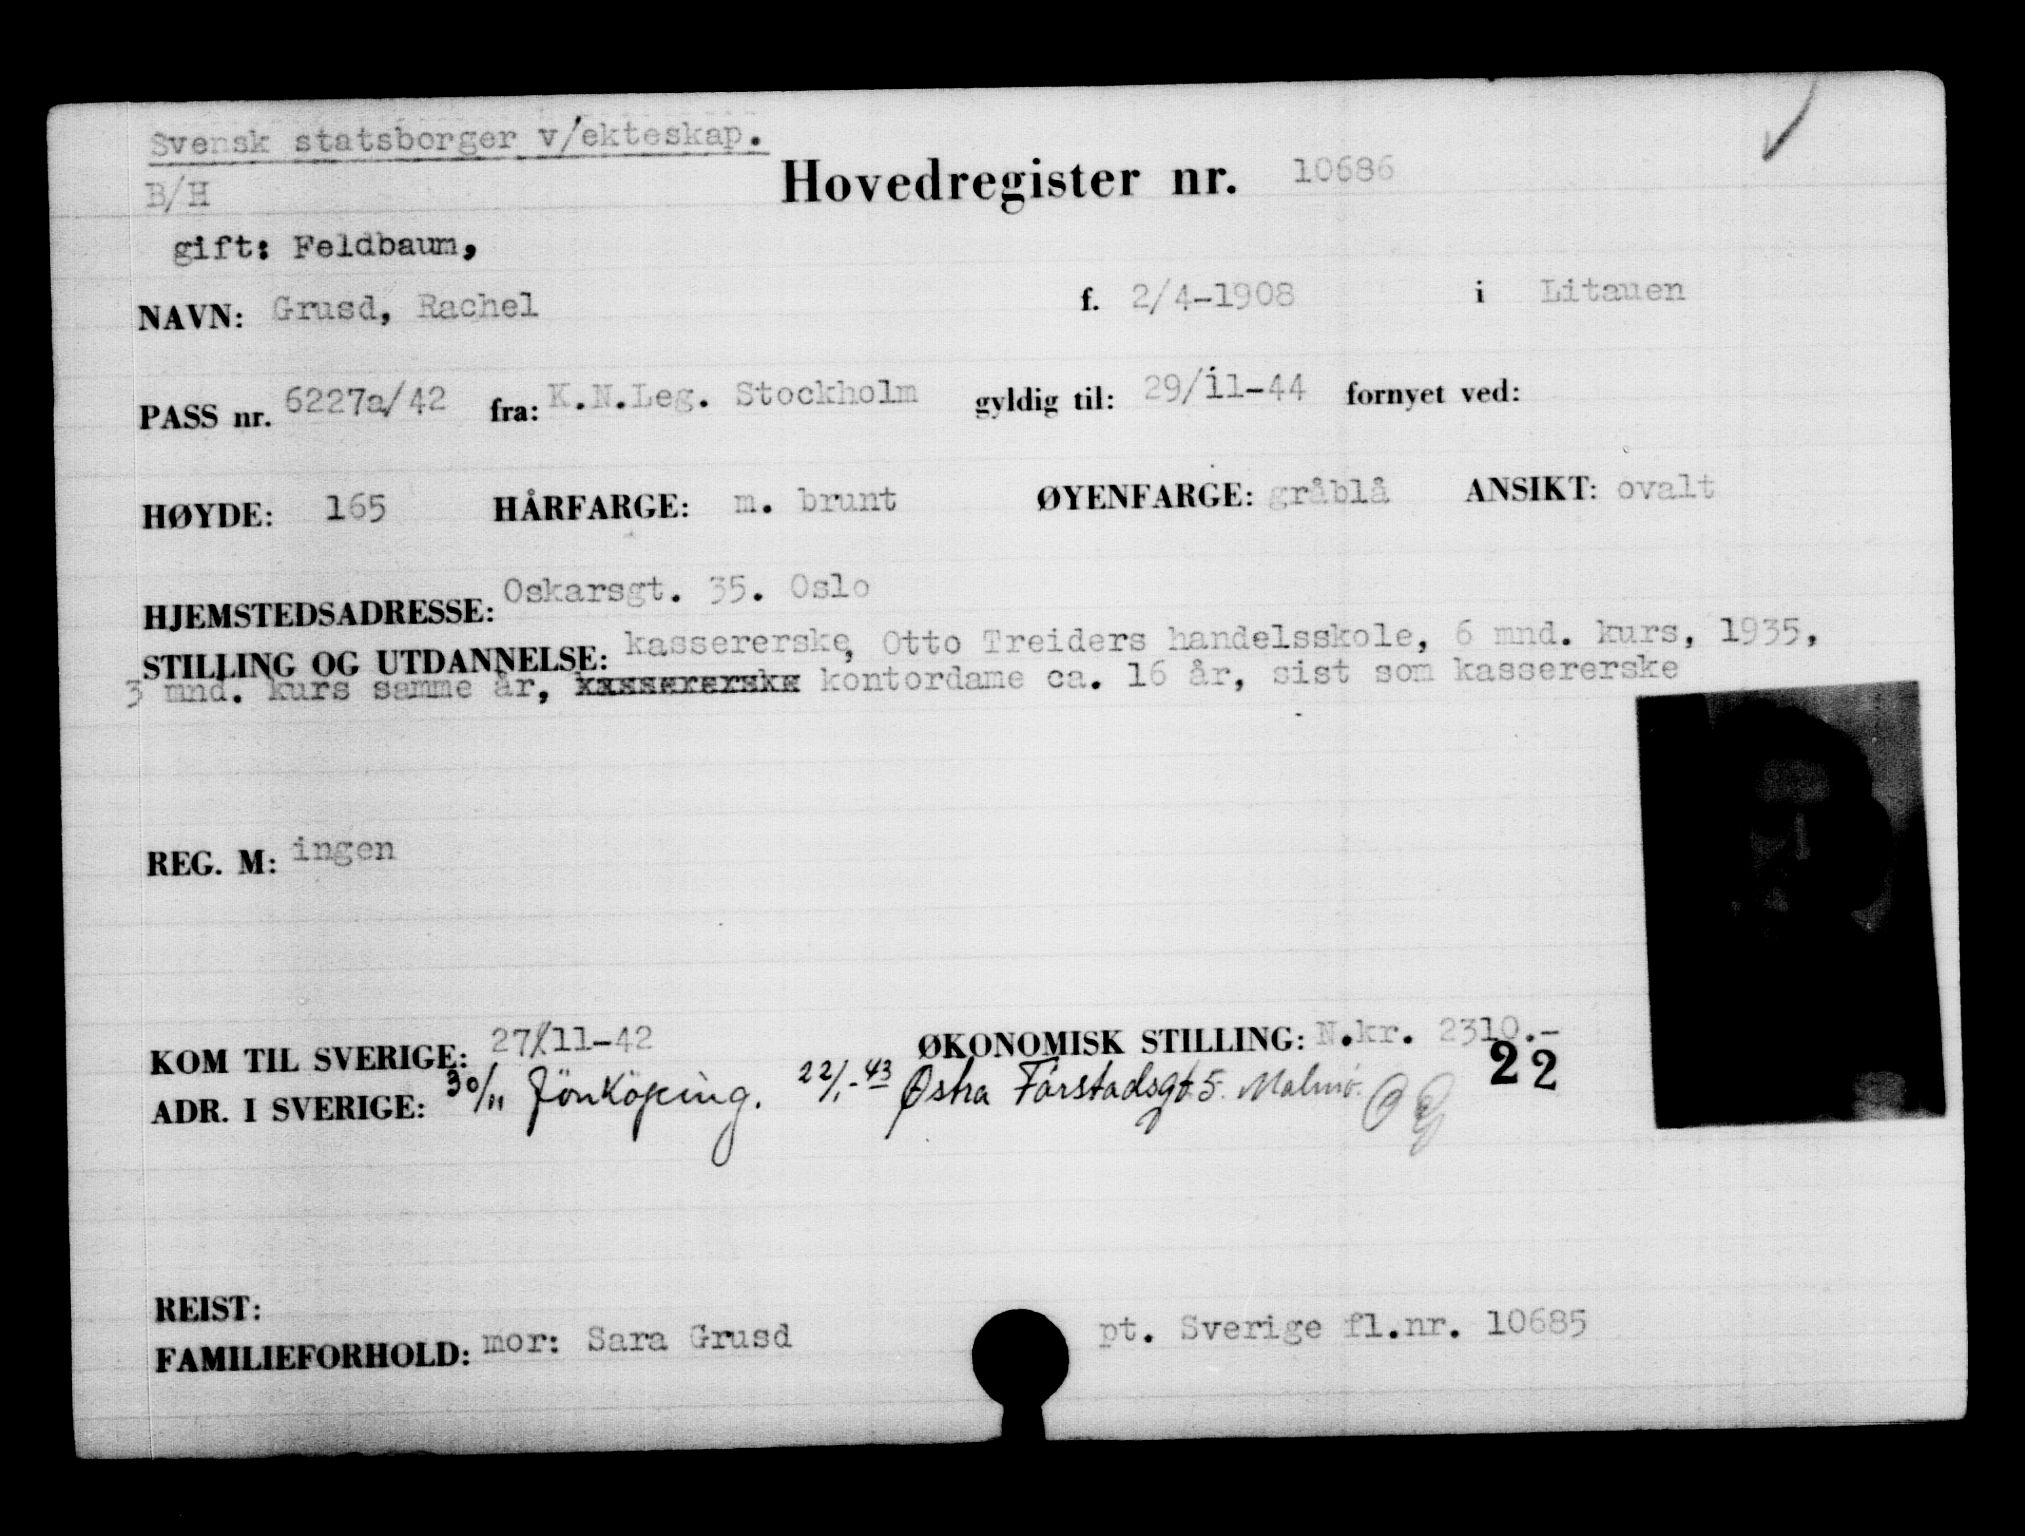 Svensk statsborger v/ekteskap.
B/H
Hovedregister nr. 10686
gift: Feldbaum,
NAVN: Grusd, Rachel f. 2/4-1908 i Litauen
PASS nr. 6227a/42 fra: K.N.Leg. Stockholm gyldig til: 29/11-44 fornyet ved:
HØYDE: 165 HÅRFARGE: m. brunt ØYENFARGE: gråblå ANSIKT: ovalt
HJEMSTEDSADRESSE: Oskarsgt. 35. Oslo
STILLING OG UTDANNELSE: kassererske, Otto Treiders handelsskole, 6 mnd. kurs, 1935,
3 mnd. kurs samme år, kontordame ca. 16 år, sist som kassererske
REG. M: ingen
KOM TIL SVERIGE: 27/11-42 ØKONOMISK STILLING: N.kr. 2310.-
22
ADR. I SVERIGE: 30/11 Jönköping. 22/1-43 Østra Farstadsgt 5. Malmö.
REIST:
FAMILIEFORHOLD: mor: Sara Grusd pt. Sverige fl.nr. 10685